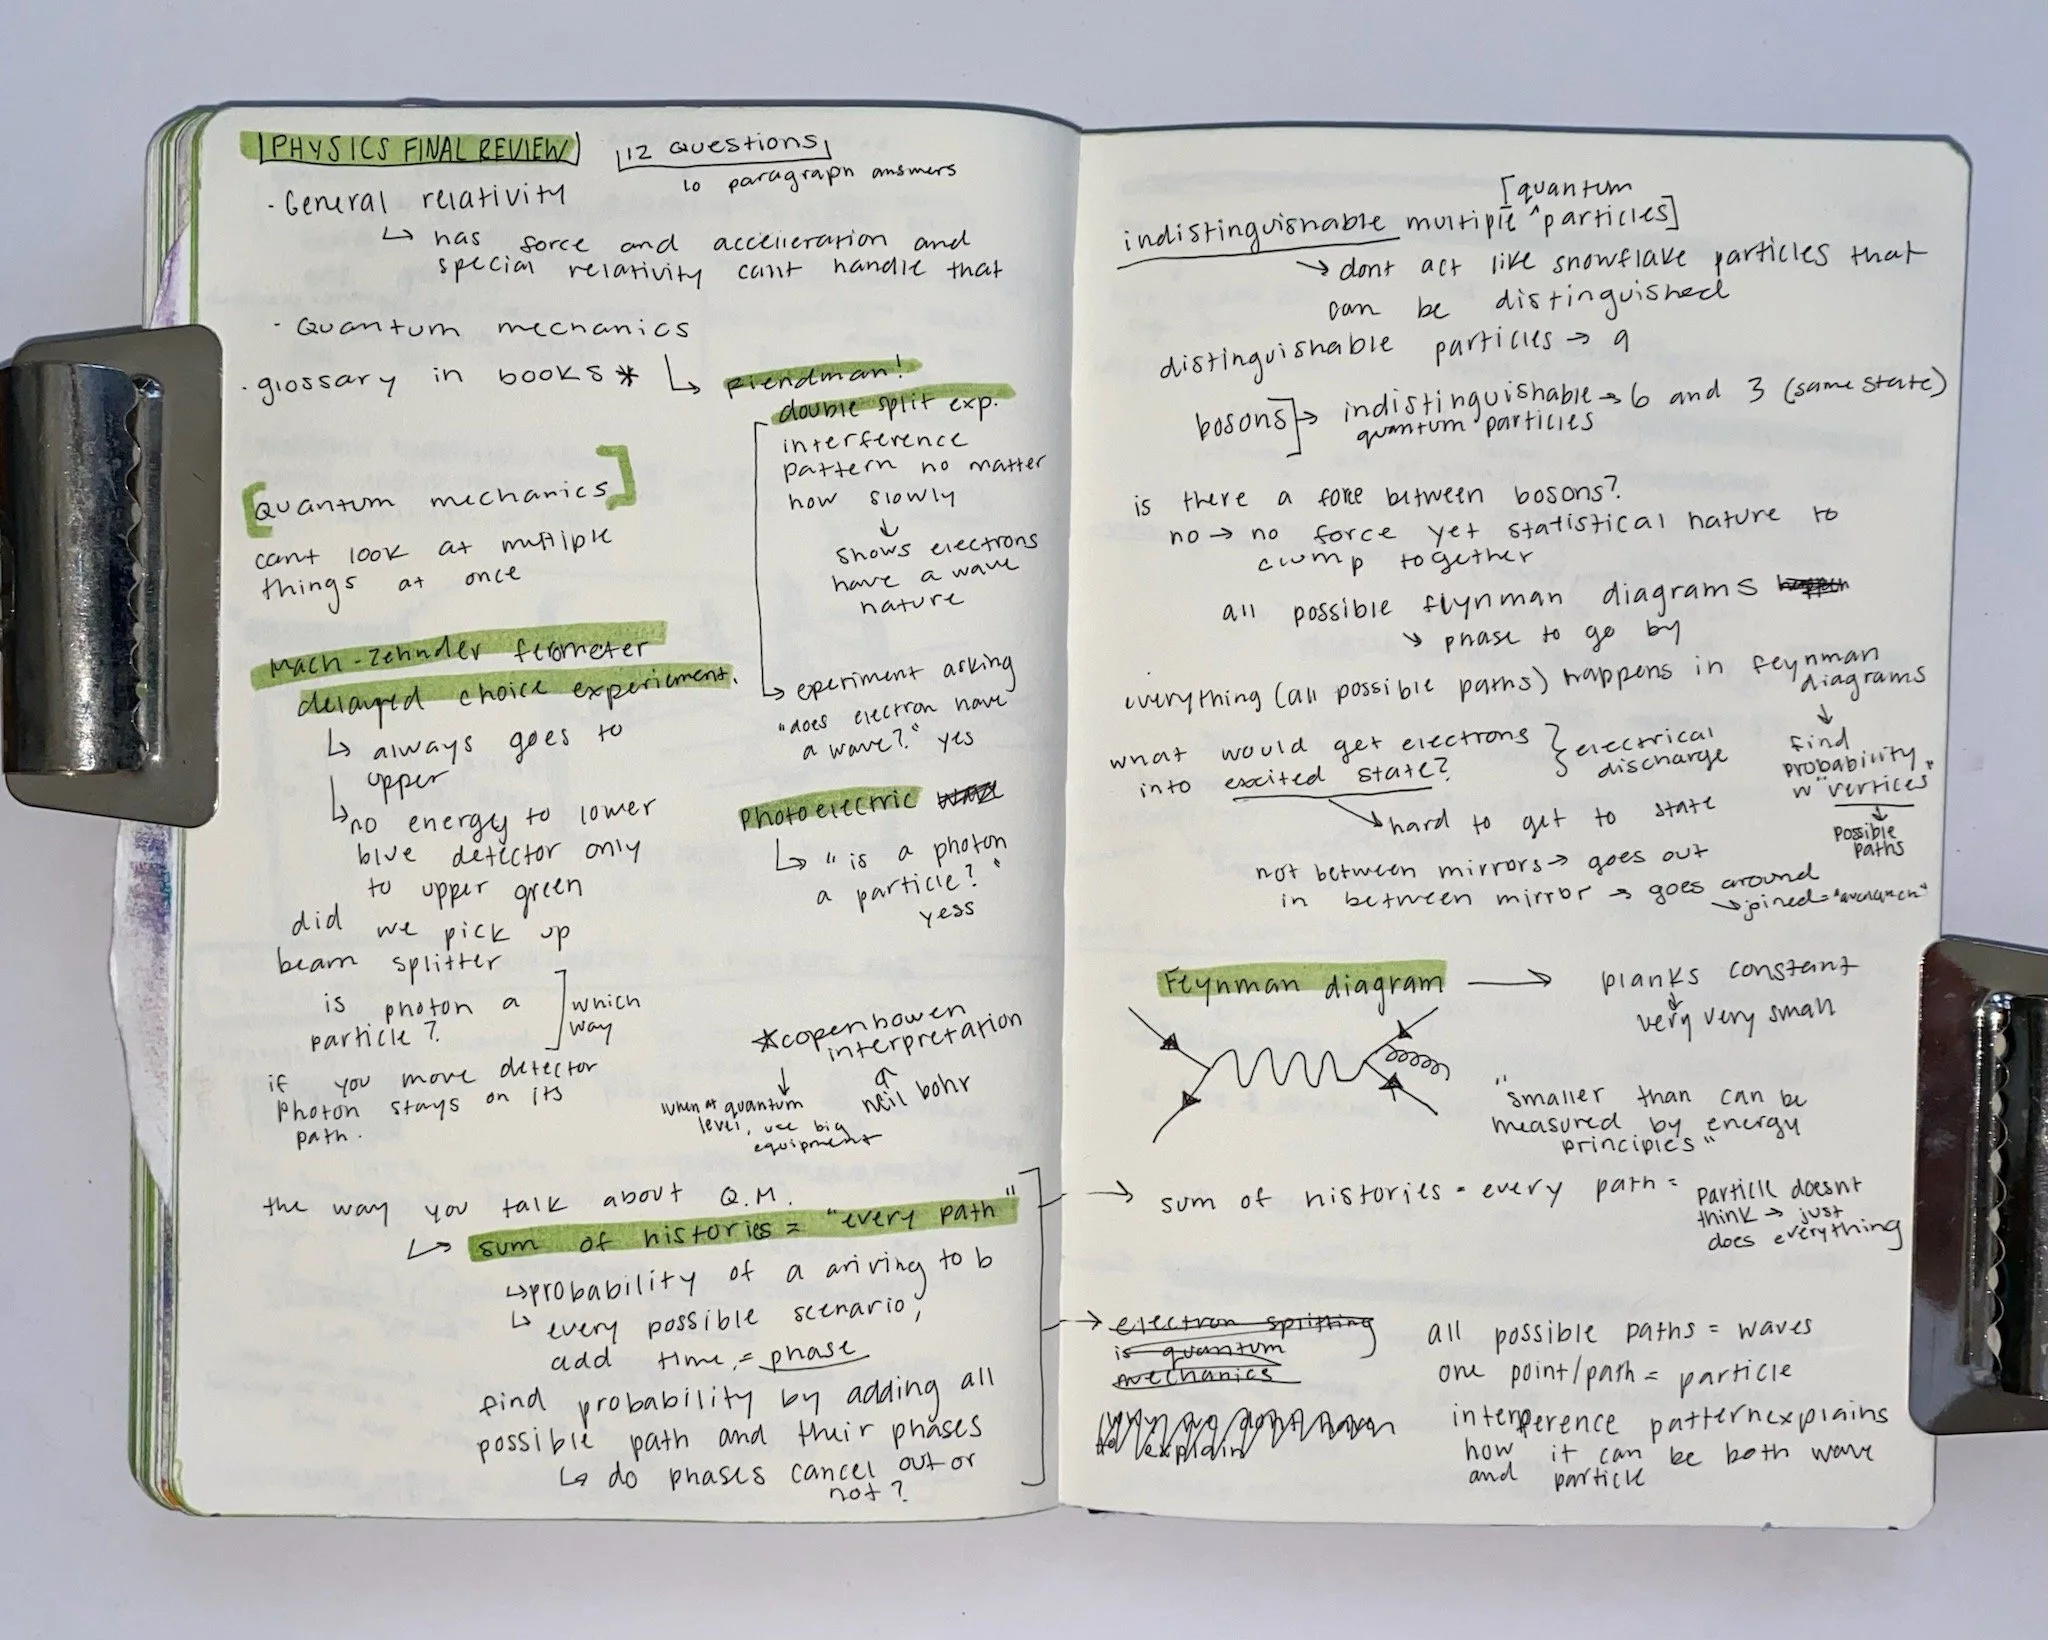 PHYSICS FINAL REVIEW
12 Questions
10 paragraph answers
· General relativity
↳ has force and acceleration and
special relativity cant handle that
· Quantum mechanics
· glossary in books *
↳ fiendman!
double split exp.
interference
pattern no matter
how slowly
↓
shows electrons
have a wave
nature
↳ experiment asking
"does electron have
a wave?" yes
Photoelectric
↳ "is a photon
a particle?"
yess
[Quantum mechanics]
cant look at multiple
things at once
Mach-Zehnder
delayed choice experiement.
↳ always goes to
upper
↳ no energy to lower
blue detector only
to upper green
did we pick up
beam splitter
is photon a
particle?
which
way
if you move detector
Photon stays on its
path.
*copenhowen
interpretation
↓
when at quantum
level, use big
equipment
↑
neil bohr
the way you talk about Q.M.
↳ sum of histories = "every path"
↳ probability of a ariving to b
↳ every possible scenario,
add time, = phase
find probability by adding all
possible path and their phases
↳ do phases cancel out or
not?
[quantum
indistinguishable multiple ^ particles]
→ dont act like snowflake particles that
can be distinguished
distinguishable particles → 9
bosons] → indistinguishable → 6 and 3 (same state)
quantum particles
is there a force between bosons?
no → no force yet statistical nature to
clump together
all possible flynman diagrams
↘ phase to go by
everything (all possible paths) happens in feynman
diagrams
↓
find
probability
w "vertices"
↓
possible
paths
what would get electrons
into excited state?
} electrical
discharge
→ hard to get to state
not between mirrors → goes out
in between mirror → goes around
↘ joined =
Feynman diagram → planks constant
↓
very very small
"smaller than can be
measured by energy
principles"
→ sum of histories = every path =
particle doesnt
think → just
does everything
→ electron splitting
is quantum
mechanics
explain
all possible paths = waves
one point/path = particle
interference pattern explains
how it can be both wave
and particle